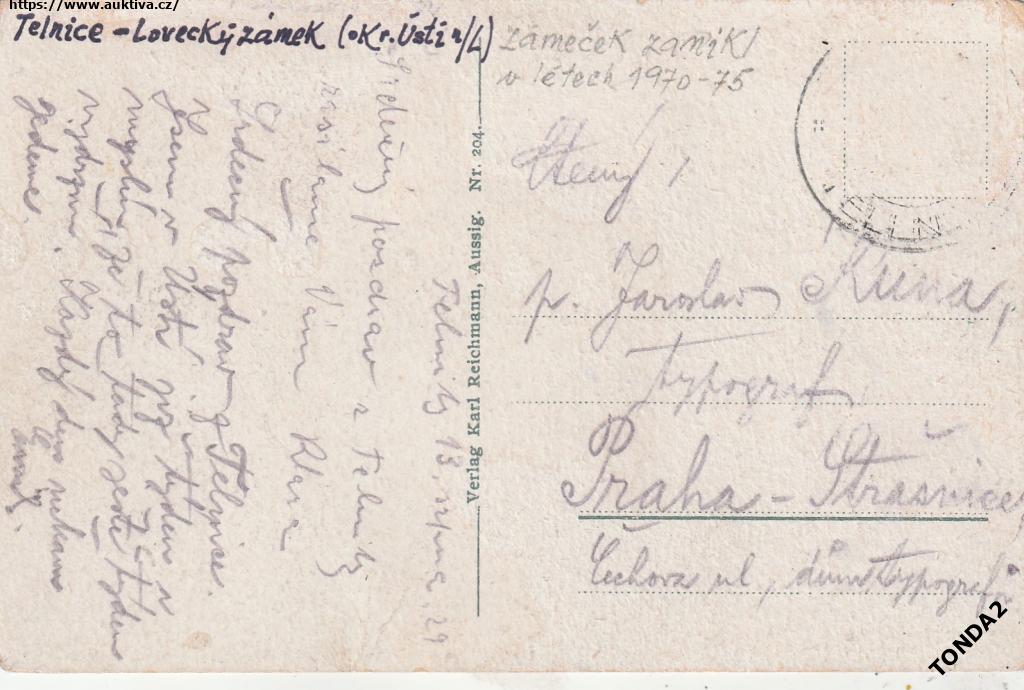 https://www.auktiva.cz/
Telnice - Lovecký zámek (okr. Ústí n/L)
zámeček zanikl
v létech 1970-75
Telnitz 13. srpna. 29
Srdečný pozdrav z Telnitz
zasíláme Vám
Srdečný pozdrav z Telnice.
Jsem v Ústí již týden a
myslím, že to tady ještě týden
vydržím. Každý den někam
jedeme.
Verlag Karl Reichmann, Aussig. Nr. 204.
TELLN
p. Jaroslav Kůna,
typograf
Praha - Strašnice,
Čechova ul, dům typografů
TONDA2